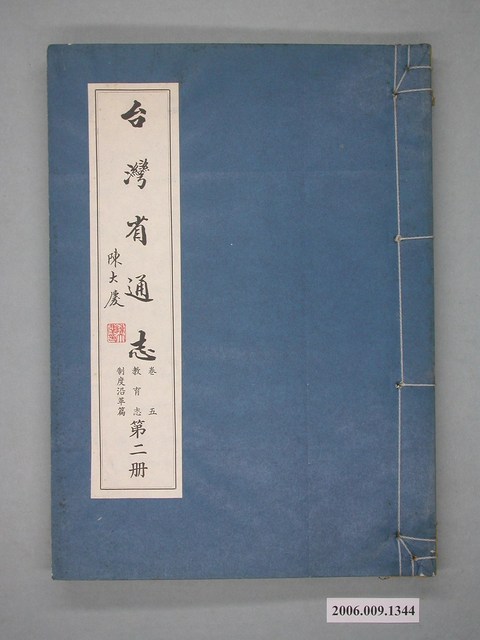 台灣省通志
卷五
教育志
制度沿革篇
第二册
陳大慶
2006.009.1344